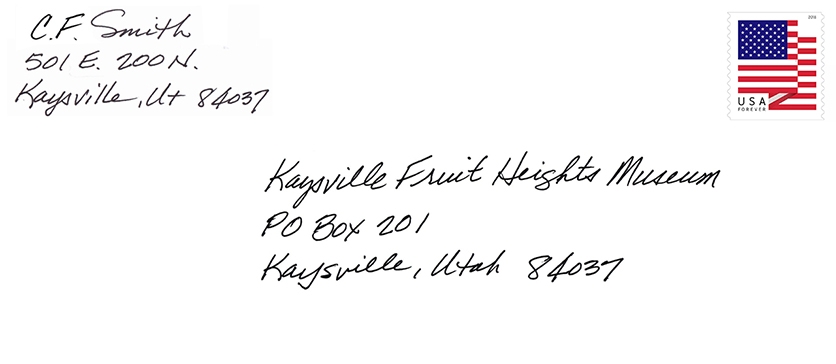 C.F. Smith
501 E. 200 N.
Kaysville, Ut 84037
2018
USA
FOREVER
Kaysville Fruit Heights Museum
PO Box 201
Kaysville, Utah 84037